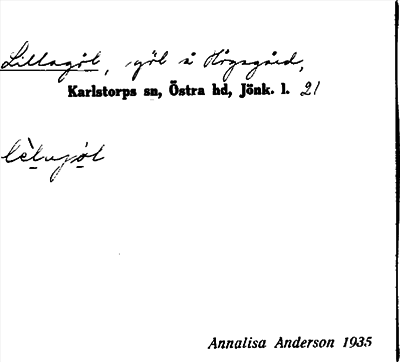 Lillagöl, göl å Högagärd,
Karlstorps sn, Östra hd, Jönk. l. 21
Annalisa Anderson 1935